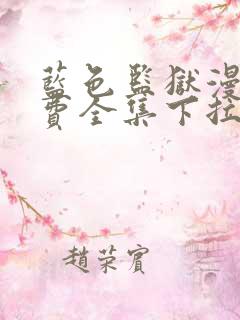 藍色監獄漫
費全集下拉
趙榮賓